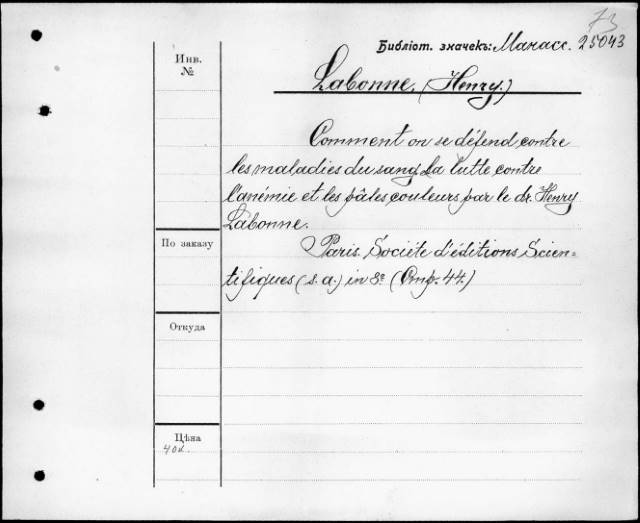 73
Библіот. значекъ: Манасс. 25043
Инв.
№
Labonne, (Henry.)
Comment on se défend contre
les maladies du sang. La lutte contre
l'anémie et les pâles couleurs par le dr. Henry
Labonne.
По заказу
Paris. Société d'éditions Scien-
tifiques (s. a.) in 8º. (Стр. 44.)
Откуда
Цѣна
40к.